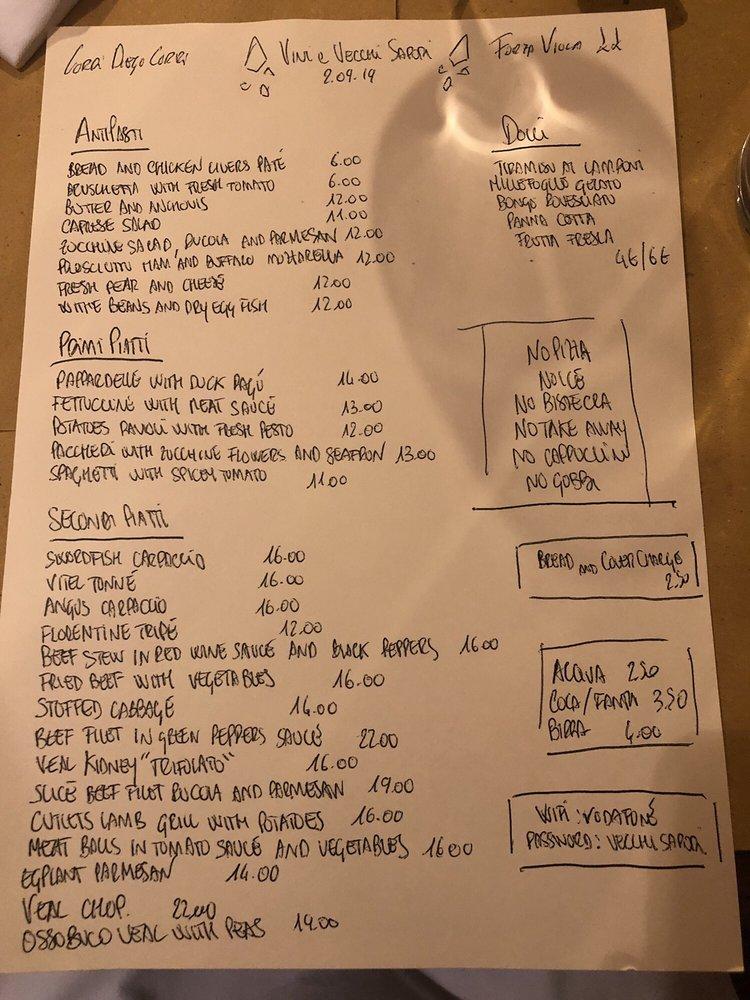 CORRI DIEGO CORRI
VINI E VECCHI SAPORI
2.09.19
FORZA VIOLA
ANTIPASTI
BREAD AND CHICKEN LIVERS PATÉ 6.00
BRUSCHETTA WITH FRESH TOMATO 6.00
BUTTER AND ANCHOVIS 12.00
CAPRESE SALAD 11.00
ZUCCHINE SALAD, RUCOLA AND PARMESAN 12.00
PROSCIUTTO HAM AND BUFFALO MOZZARELLA 12.00
FRESH PEAR AND CHEESE 12.00
WITHE BEANS AND DRY EGG FISH 12.00
PRIMI PIATTI
PAPPARDELLE WITH DUCK RAGÚ 14.00
FETTUCCINE WITH MEAT SAUCE 13.00
POTATOES RAVIOLI WITH FRESH PESTO 12.00
PACCHERI WITH ZUCCHINE FLOWERS AND SEAFRON 13.00
SPAGHETTI WITH SPICEY TOMATO 11.00
SECONDI PIATTI
SWORDFISH CARPACCIO 16.00
VITEL TONNÉ 16.00
ANGUS CARPACCIO 16.00
FLORENTINE TRIPE 12.00
BEEF STEW IN RED WINE SAUCE AND BLACK PEPPERS 16.00
FRIED BEEF WITH VEGETABLES 16.00
STUFFED CABBAGE 14.00
BEEF FILET IN GREEN PEPPERS SAUCE 22.00
VEAL KIDNEY "TRIFOLATO" 16.00
SLICE BEEF FILET RUCOLA AND PARMESAN 19.00
CUTLETS LAMB GRILL WITH POTATOES 16.00
MEAT BALLS IN TOMATO SAUCE AND VEGETABLES 16.00
EGPLANT PARMESAN 14.00
VEAL CHOP. 22.00
OSSOBUCO VEAL WITH PEAS 19.00
DOLCI
TIRAMISU AI LAMPONI
MILLEFOGLIE GELATO
BONGO ROVESCIATO
PANNA COTTA
FRUTTA FRESCA
4€/6€
NO PIZZA
NO ICE
NO BISTECCA
NO TAKE AWAY
NO CAPPUCCINO
NO GOBBI
BREAD AND COVER CHARGE
2.50
ACQUA 2.50
COCA/FANTA 3.50
BIRRA 4.00
WIFI: VODAFONE
PASSWORD: VECCHI SAPORI